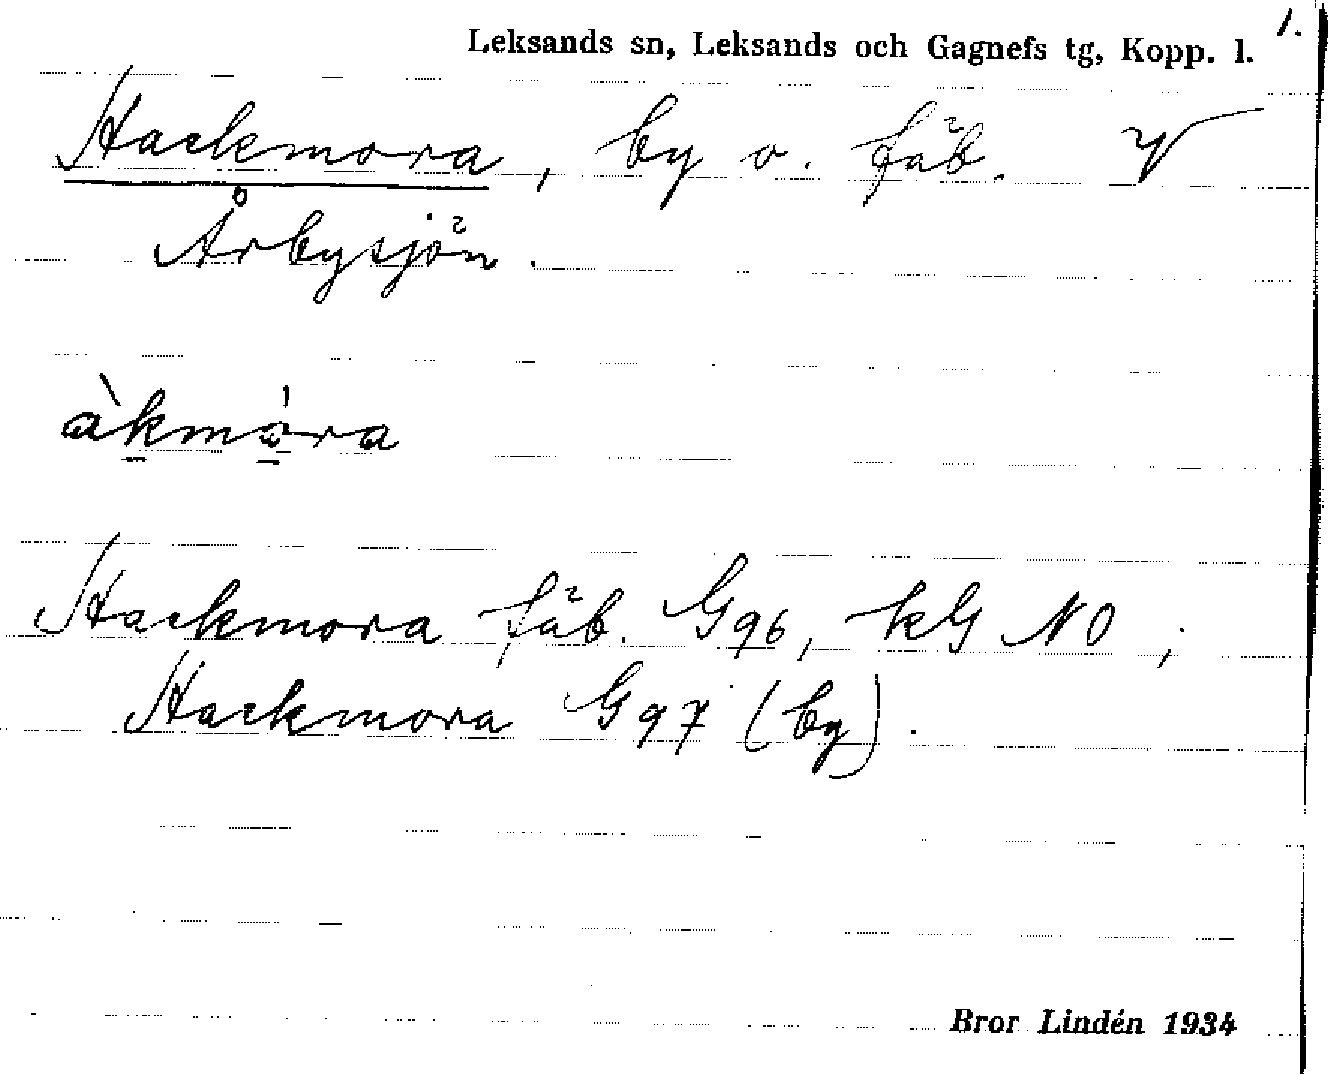 1.
Leksands sn, Leksands och Gagnefs tg, Kopp. l.
Hackmora, by o. fäb. V
Årbysjön.
àkmóra
Hackmora fäb. G96, kG NO;
Hackmora G97 (by).
Bror Lindén 1934